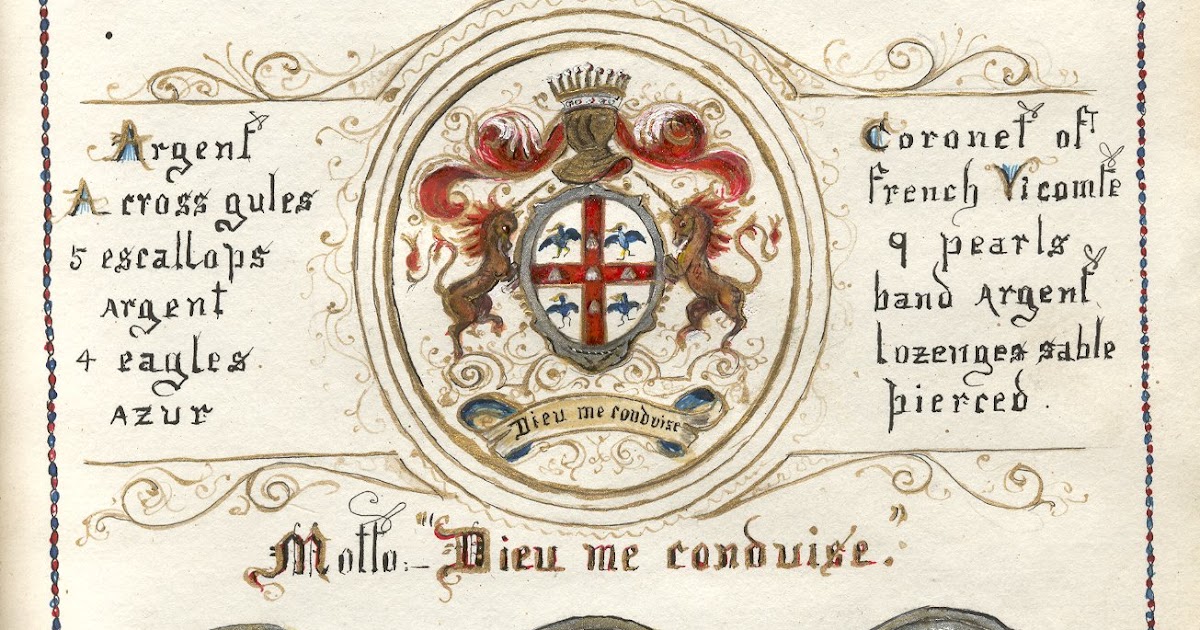 Argent
A cross gules
5 escallops
argent
4 eagles
azur
Coronet of
french Vicomte
9 pearls
band argent
lozenges sable
pierced.
Dieu me conduise
Motto:— "Dieu me conduise."